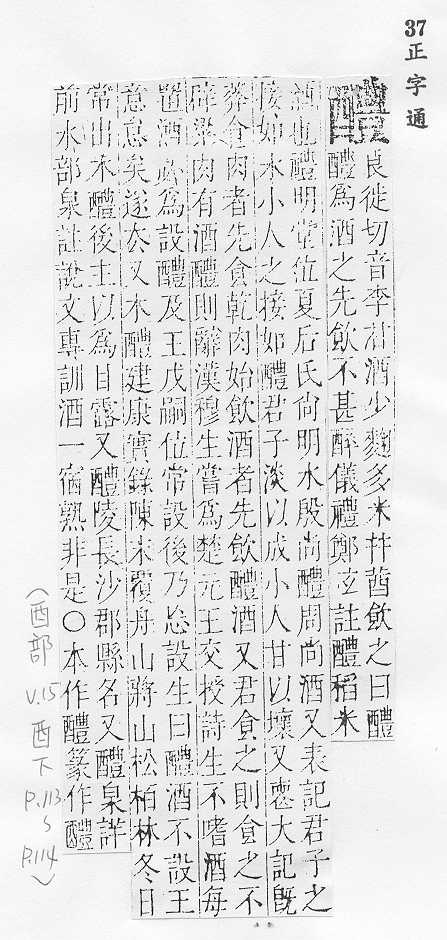 37 正字通
醴
良徙切音李甘酒少麴多米幷酋飲之曰醴
醴為酒之先飲不甚醉儀禮鄭玄註醴稻米
酒也醴明堂位夏后氏尙明水殷尙醴周尙酒又表記君子之
接如水小人之接如醴君子淡以成小人甘以壞又喪大記旣
葬食肉者先食乾肉始飲酒者先飲醴酒又君食之則食之不
辟粱肉有酒醴則辭漢穆生嘗為楚元王交授詩生不嗜酒每
置酒必為設醴及王戊嗣位常設後乃忘設生曰醴酒不設王
意怠矣遂去又木醴建康實錄陳末覆舟山蔣山松柏林冬日
常出木醴後主以為甘露又醴陵長沙郡縣名又醴泉詳
前水部泉註說文專訓酒一宿熟非是〇本作醴篆作醴
(酉部 V.15 酉下 P.113 ~ P.114)